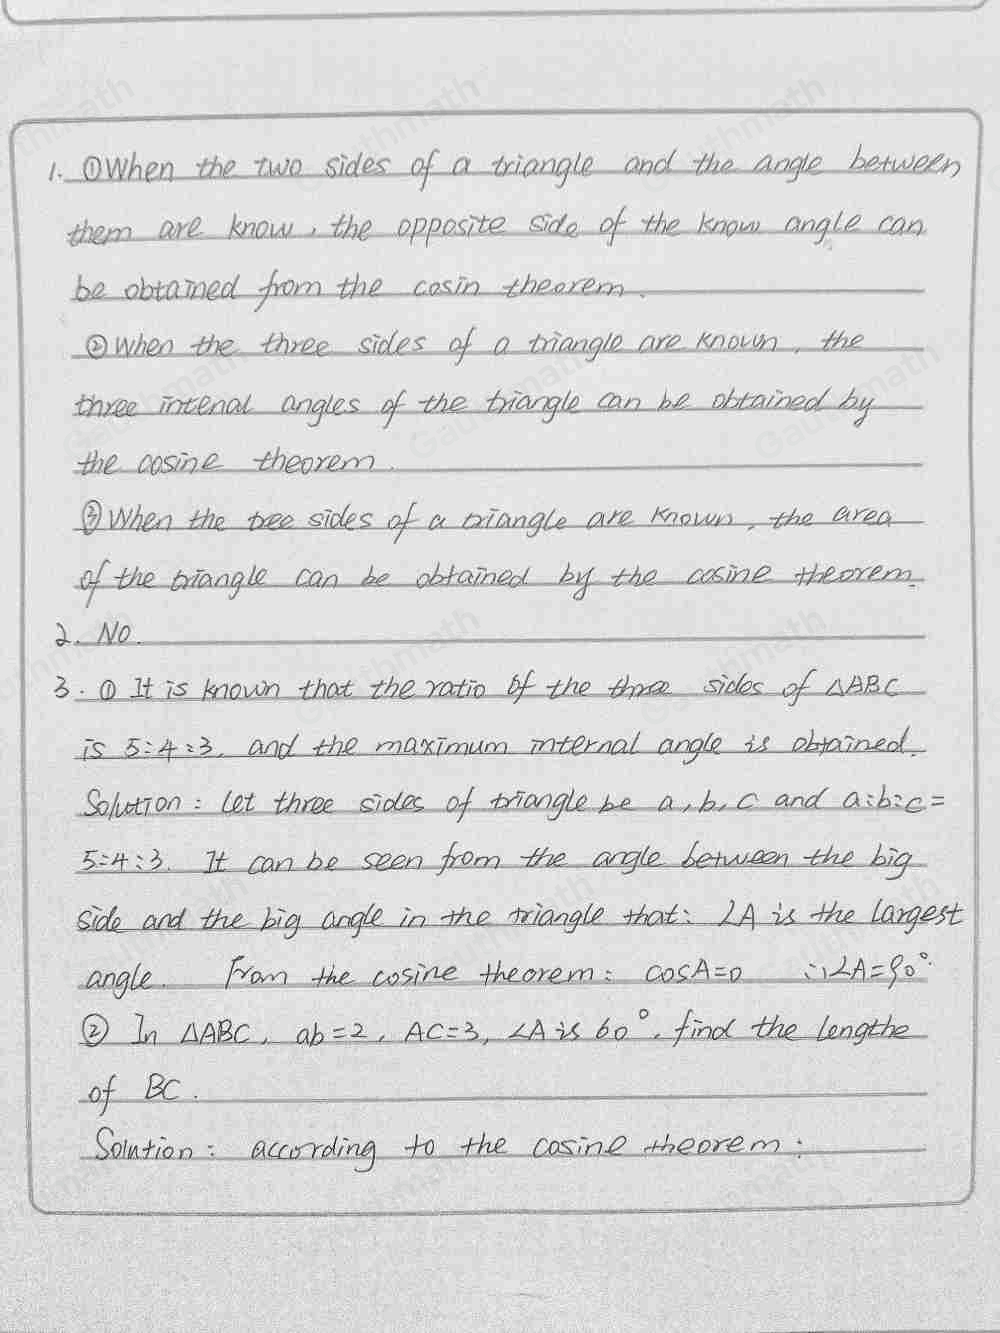 1. ①When the two sides of a triangle and the angle between
them are know, the opposite side of the know angle can
be obtained from the cosin theorem.
②When the three sides of a triangle are known, the
three intenal angles of the triangle can be obtained by
the cosine theorem.
③When the tree sides of a triangle are known, the area
of the triangle can be obtained by the cosine theorem.
2. No.
3. ① It is known that the ratio of the three sides of △ABC
is 5:4:3, and the maximum internal angle is obtained.
Solution: Let three sides of triangle be a, b, c and a:b:c=
5:4:3. It can be seen from the angle between the big
side and the big angle in the triangle that: ∠A is the largest
angle. From the cosine theorem: cosA=0 ∴∠A=90°.
② In △ABC, ab=2, AC=3, ∠A is 60°, find the lengthe
of BC.
Solution: according to the cosine theorem:
Gauthmath